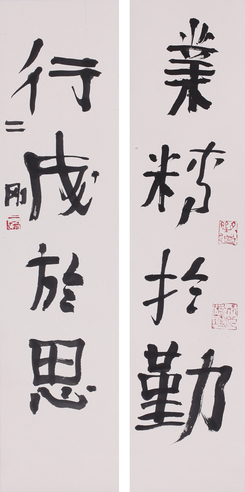 業精於勤
行成於思
二剛